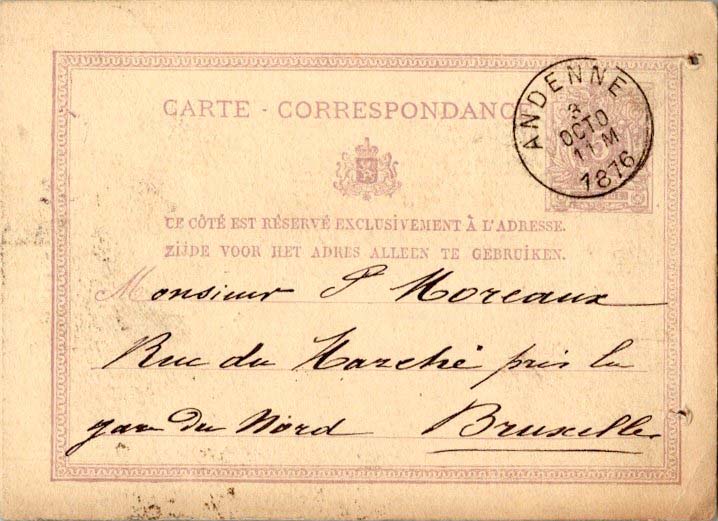 CARTE - CORRESPONDANC
ANDENNE
3
OCTO
11 M
1876
CE CÔTÉ EST RÉSERVÉ EXCLUSIVEMENT À L'ADRESSE.
ZIJDE VOOR HET ADRES ALLEEN TE GEBRUIKEN.
Monsieur P Moreaux
Rue du Marché près la
gare du Nord Bruxelles